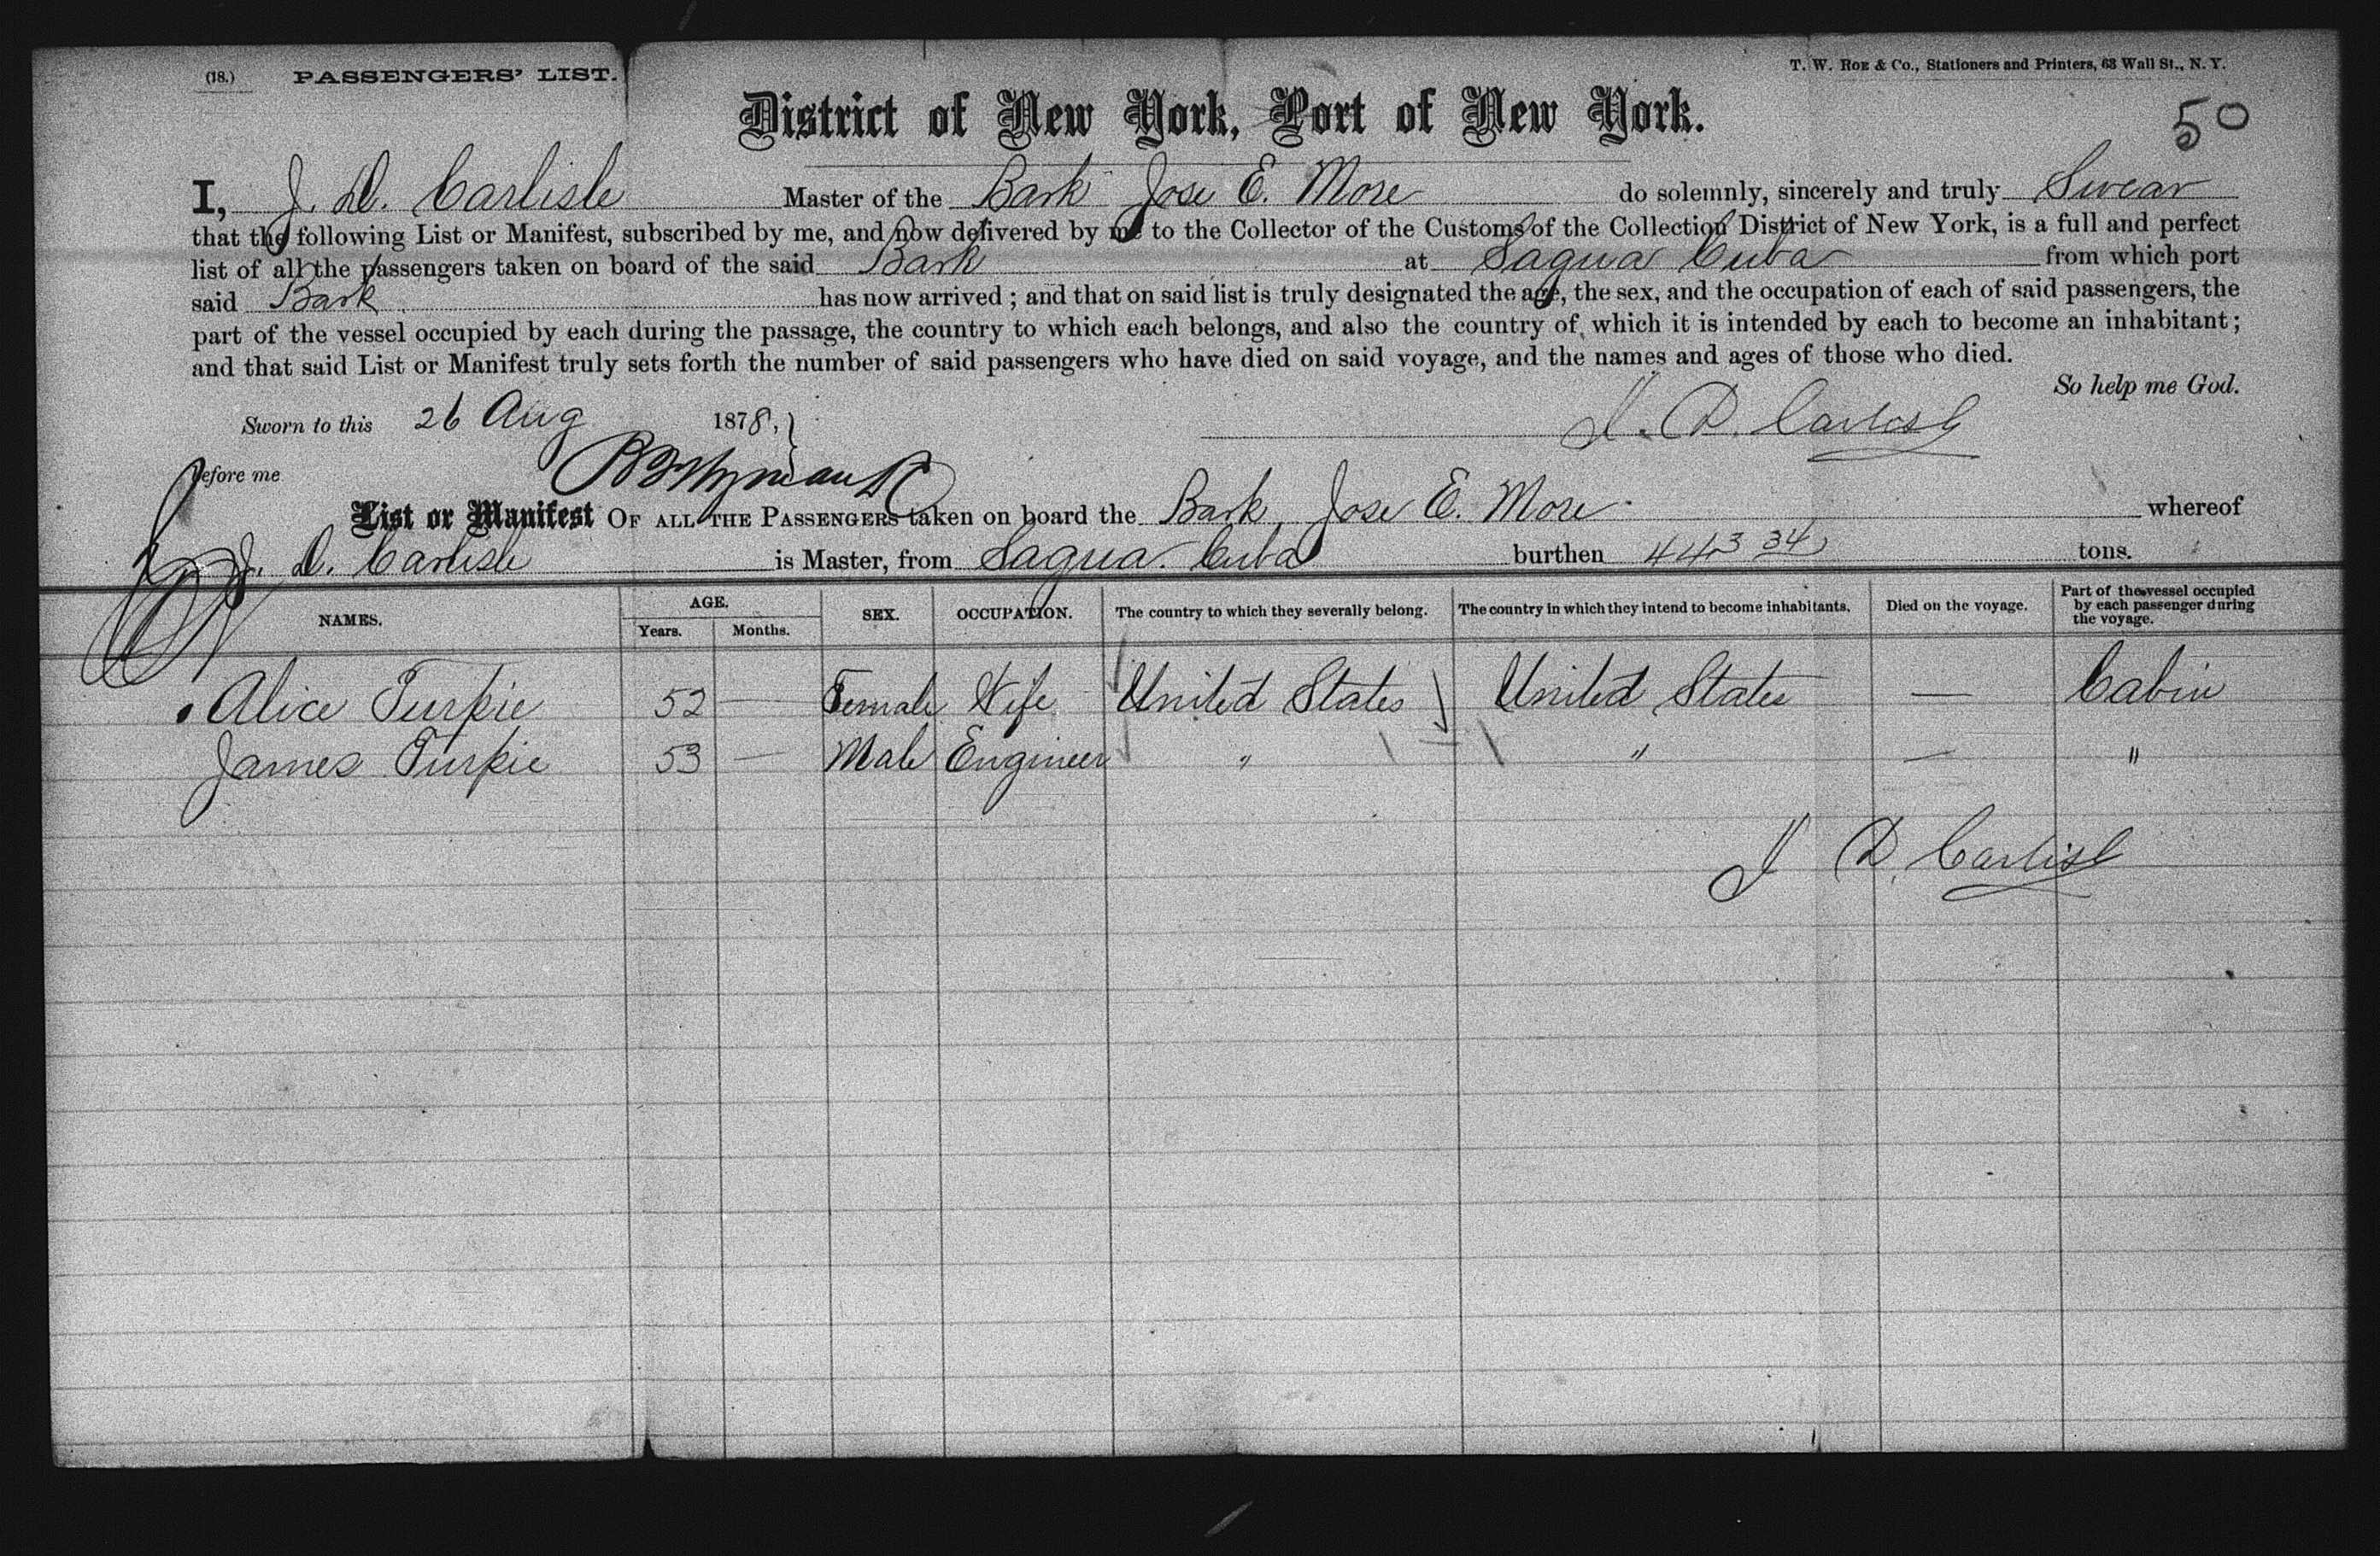 (18.) PASSENGERS' LIST.
T. W. ROE & CO., Stationers and Printers, 63 Wall St., N. Y.
District of New York, Port of New York.
50
I, J. D. Carlisle Master of the Bark Jose E. More do solemnly, sincerely and truly Swear
that the following List or Manifest, subscribed by me, and now delivered by me to the Collector of the Customs of the Collection District of New York, is a full and perfect
list of all the passengers taken on board of the said Bark at Sagua Cuba from which port
said Bark has now arrived; and that on said list is truly designated the age, the sex, and the occupation of each of said passengers, the
part of the vessel occupied by each during the passage, the country to which each belongs, and also the country of which it is intended by each to become an inhabitant;
and that said List or Manifest truly sets forth the number of said passengers who have died on said voyage, and the names and ages of those who died.
So help me God.
Sworn to this 26 Aug 1878,
J. D. Carlisle
Before me
List or Manifest OF ALL THE PASSENGERS taken on board the Bark Jose E. More whereof
J. D. Carlisle is Master, from Sagua Cuba burthen 443 34 tons.
NAMES. AGE. Years. Months. SEX. OCCUPATION. The country to which they severally belong. The country in which they intend to become inhabitants. Died on the voyage. Part of the vessel occupied by each passenger during the voyage.
Alice Turpie 52 — Female Wife United States United States — Cabin
James Turpie 53 — Male Engineer " " — "
J D. Carlisle